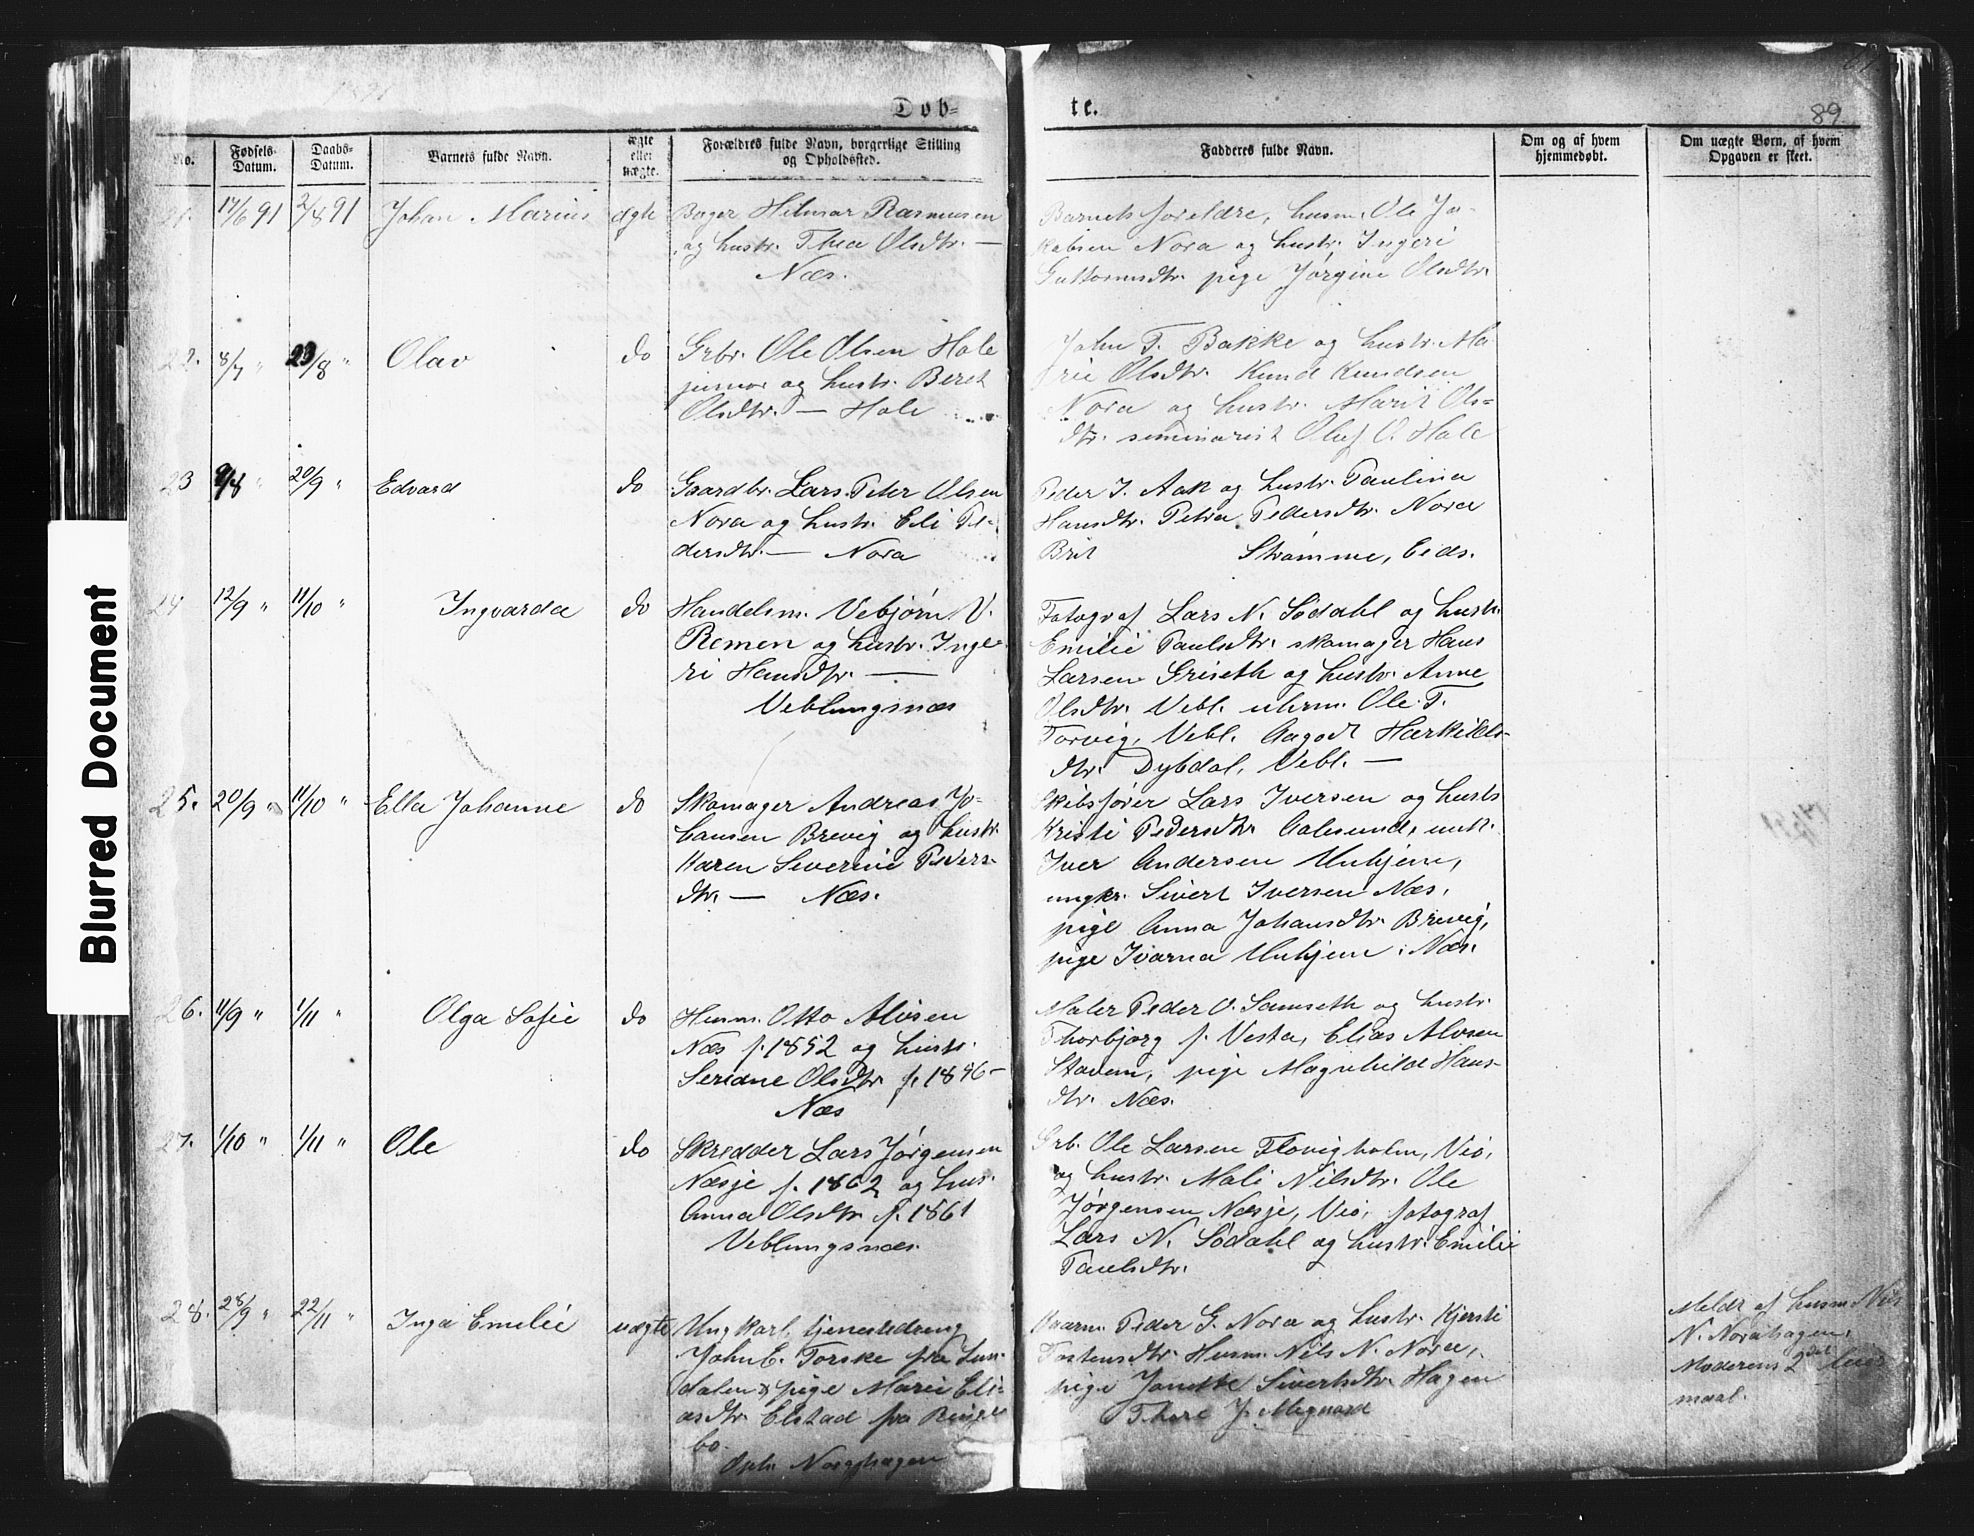 89
Døb=
te.
No.
Fødsels-
Datum.
Daabs-
Datum.
Barnets fulde Navn.
ægte
eller
uægte.
Forældres fulde Navn, borgerlige Stilling
og Opholdssted.
Fadderes fulde Navn.
Om og af hvem
hjemmedøbt.
Om uægte Børn, af hvem
Opgaven er skeet.
21. 17/6 91 2/8 91 Johan Marius ægte
Bager Hilmar Rasmussen
og hustr. Thea Olsdtr. —
Næs.
Barnets foreldre, husm. Ole Ja-
kobsen Nora og hustr. Ingeri
Guttormsdtr. pige Jørgine Olsdtr.
22. 8/7 " 23/8 " Olav do
Grbr. Ole Olsen Hole
junior og hustr. Beret
Olsdtr. — Hole
John T. Bakke og hustr. Ma
rie Olsdtr. Knud Knudsen
Nora og hustr. Marit Ols=
dtr. seminarist Oluf O. Hole
23 9/8 " 20/9 " Edvard do
Gaardbr. Lars Peter Olsen
Nora og hustr. Eli Pe-
dersdtr. — Nora
Peder J. Aak og hustr. Paulina
Hansdtr. Petra Pedersdtr. Nora
Brit Strømme, Eids.
24 12/9 " 11/10 " Ingvarda do
Handelsm. Vebjørn V.
Remen og hustr. Inge
ri Hansdtr. —
Veblungsnæs
Fotograf Lars N. Södahl og hustr.
Emilie Paulsdtr. skomager Hans
Larsen Griseth og hustr. Anne
Olsdtr. Vebl. uhrm. Ole T.
Torvig, Vebl. Aagodt Hærkilds-
dtr. Dybdal, Vebl. —
25. 20/9 " 11/10 " Ella Johanne do
Skomager Andreas Jo-
hansen Brevig og hustr.
Karen Severine Peders-
dtr. — Næs.
Skibsfører Lars Iversen og hustr.
Kristi Pedersdtr. Aalesund, enk.
Iver Andersen Unhjem,
ungkr. Sivert Iversen Næs,
pige Anna Johansdtr. Brevig,
pige Ivarna Unhjem, Næs.
26. 11/9 " 1/11 " Olga Sofie do
Husm. Otto Alvsen
Næs f. 1852 og hustr.
Seriane Olsdtr. f. 1846 —
Næs
Maler Peder O. Samseth og hustr.
Thorbjørg f. Vesta, Elias Alvsen
Stavem, pige Magnhild Hans-
dtr. Næs.
27. 1/10 " 1/11 " Ole do
Skredder Lars Jørgensen
Næsje f. 1862 og hus.
Anna Olsdtr. f. 1861
Veblungsnæs.
Grb. Ole Larsen Flovigholm, Vio,
og hustr. Mali Nilsdtr. Ole
Jørgensen Næsje, Vio, fotograf
Lars N. Södahl og hustr. Emilie
Paulsdtr.
28. 28/9 " 22/11 " Inga Emilie uægte
Ungkarl, tjenestedreng
John E. Torske fra Sun-
dalen & pige Marie Eli-
asdtr. Elstad fra Ringe
bo.
Oph. Norahagen
Kaarm. Peder G. Nora og hustr. Kjersti
Tostensdtr. Husm. Nils N. Nora,
pige Janette Sivertsdtr. Hagen
Thore J.
Meldt af husm Nils
N. Norahagen.
Moderens 2det leier
maal.
Blurred Document